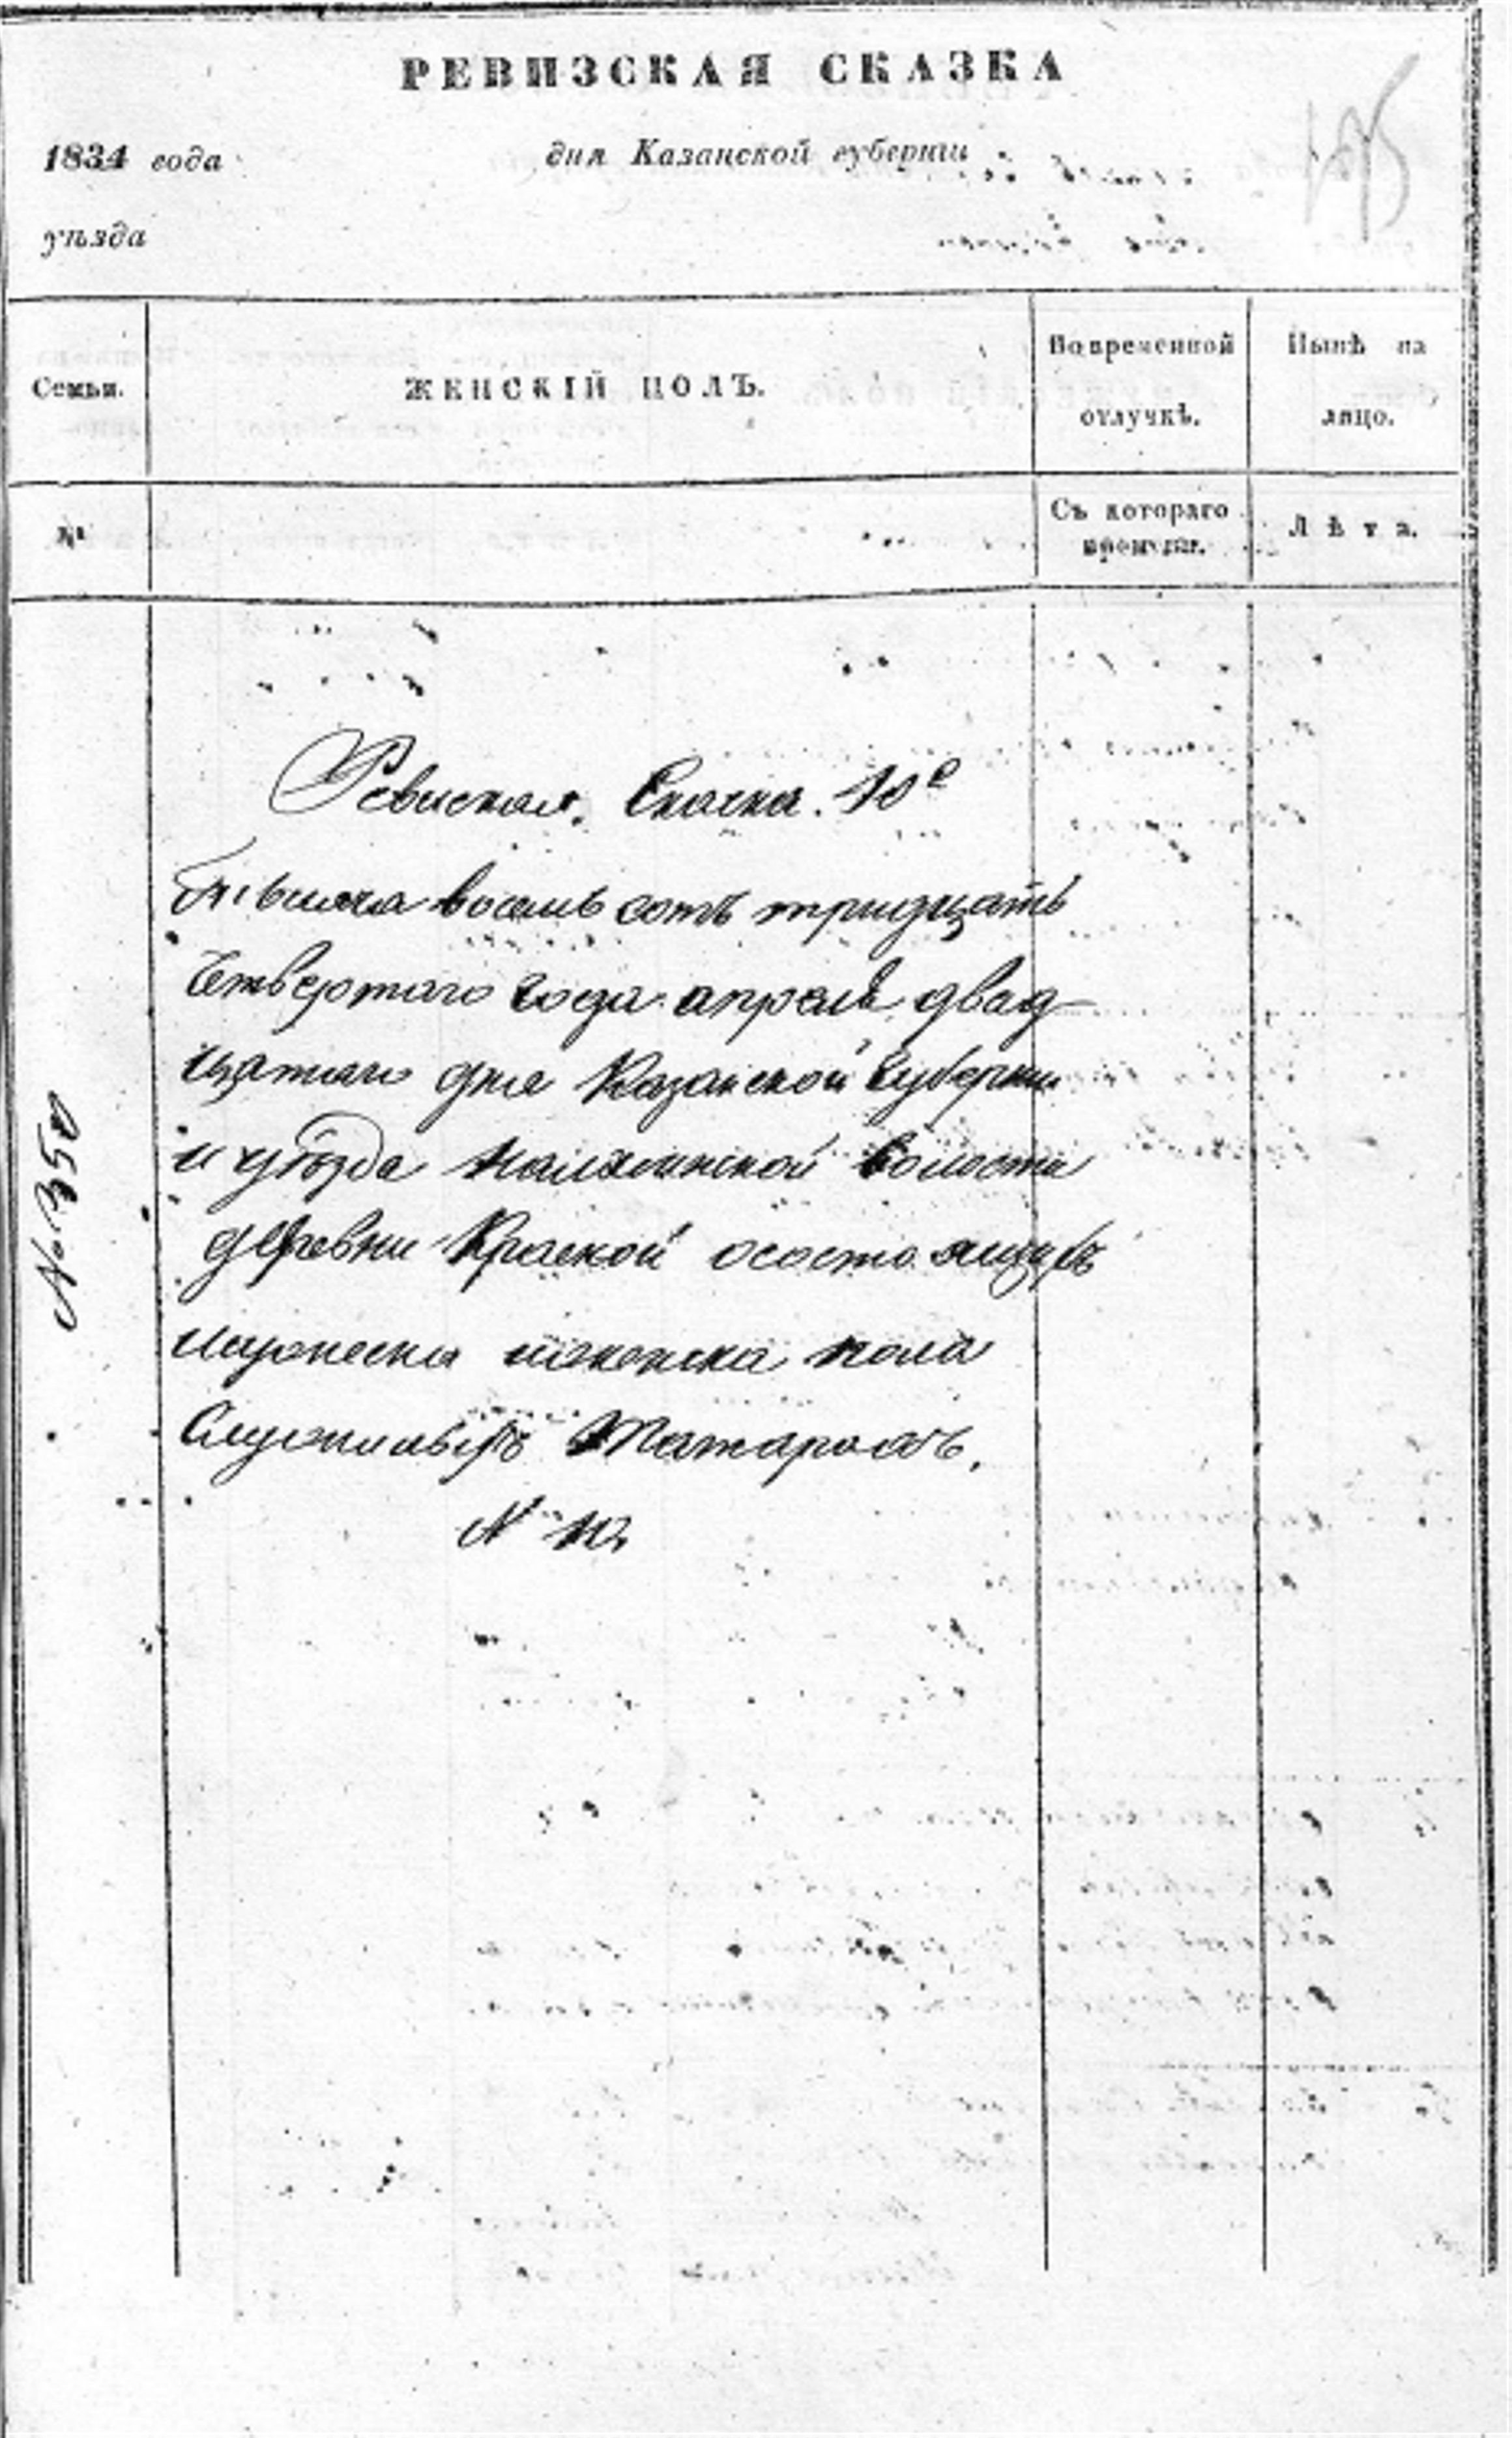 РЕВИЗСКАЯ СКАЗКА
1834 года дня Казанской губерніи
уѣзда
Семьи. ЖЕНСКІЙ ПОЛЪ. Во временной отлучкѣ. Нынѣ на лицо.
№ Съ котораго времени. Лѣта.
Ревиская Скаска. 10е
Тысяча восемь сотъ тридцать
Четвертаго Года апреля двад
цатаго дня Казанской Губернии
и уѣзда волости
деревни осостоящихъ
мужеска иженска пола
Служилыхъ Татарахъ.
№ 350